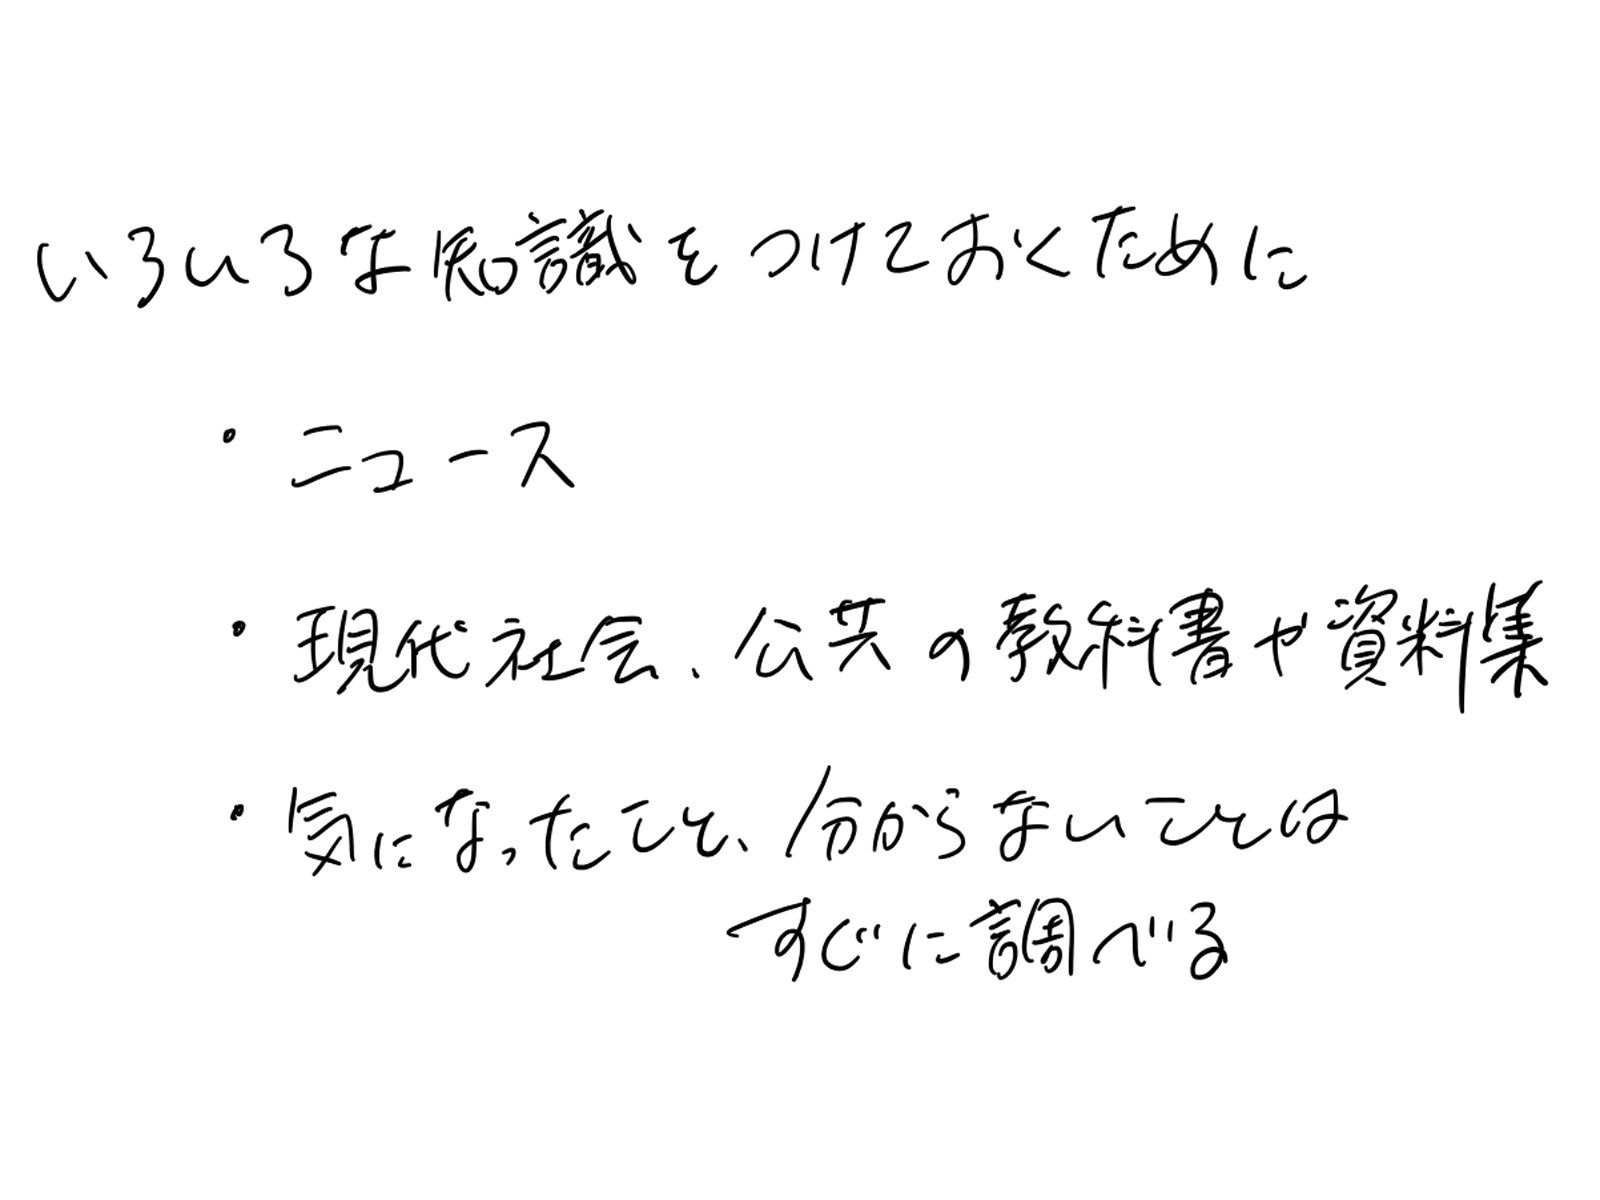 いろいろな知識をつけておくために
・ニュース
・現代社会、公共の教科書や資料集
・気になったこと、分からないことは
すぐに調べる